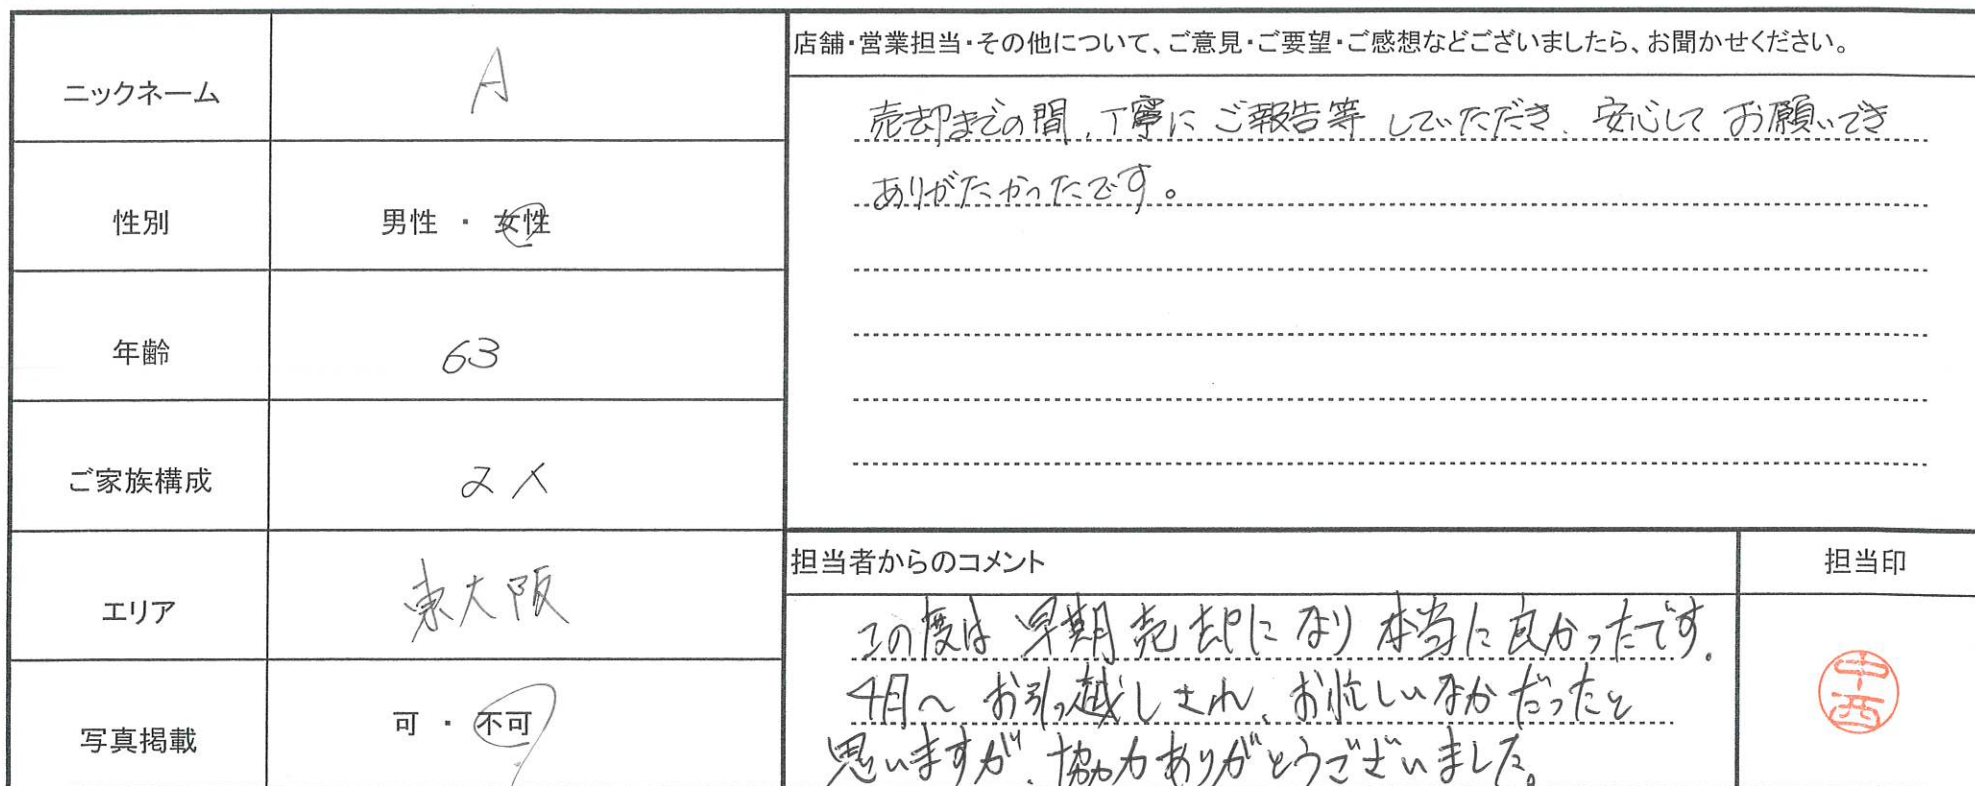 ニックネーム
A
性別
男性 ・ 女性
年齢
63
ご家族構成
2人
エリア
東大阪
写真掲載
可 ・ 不可
店舗・営業担当・その他について、ご意見・ご要望・ご感想などございましたら、お聞かせください。
売却までの間、丁寧にご報告等していただき、安心してお願いでき
ありがたかったです。
担当者からのコメント
この度は早期売却になり本当に良かったです。
4月へお引っ越しされ、お忙しいなかだったと
思いますが、協力ありがとうございました。
担当印
中西